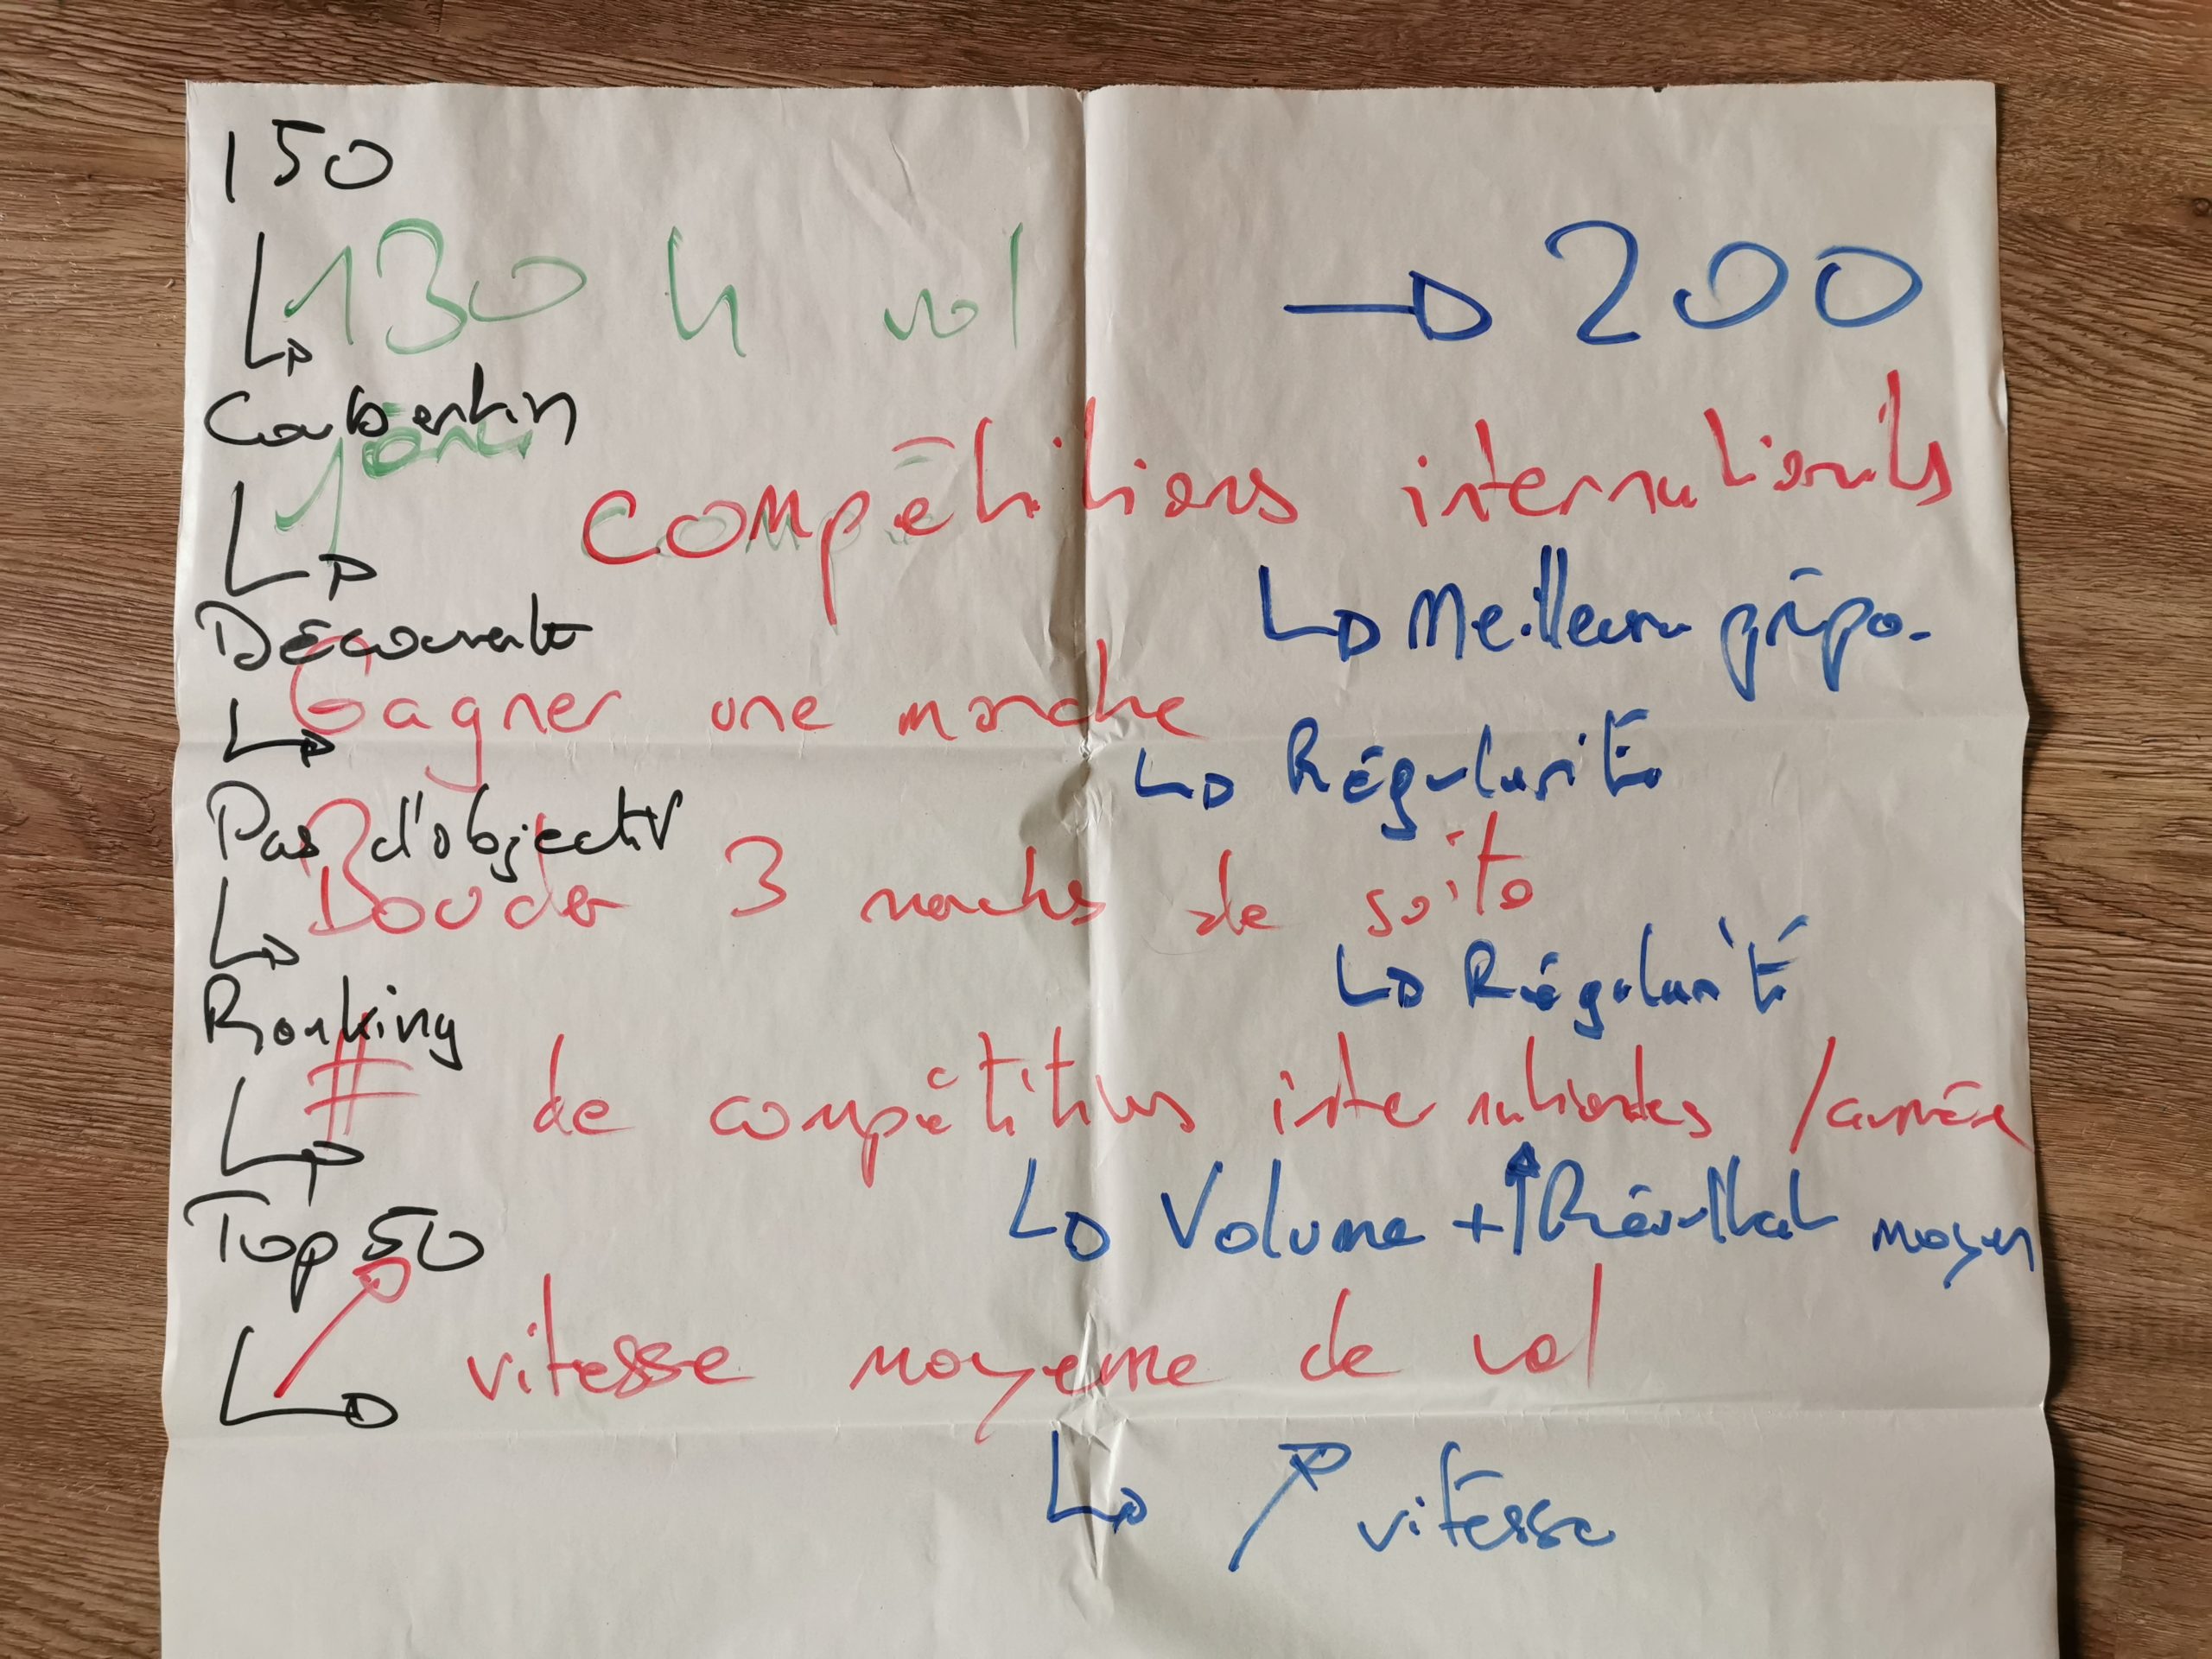 150
130 h vol → 200
1 compétitions internationals
↳ Meilleure prépa.
Découverte
Gagner une manche
↳ Régularité
Pas d'objectif
3 manches de suite
↳ Régularité
Ranking
# de compétitions internationales /année
↳ Volume + ↑ Résultat moyen
Top 50
↗ vitesse moyenne de vol
↳ ↗ vitesse